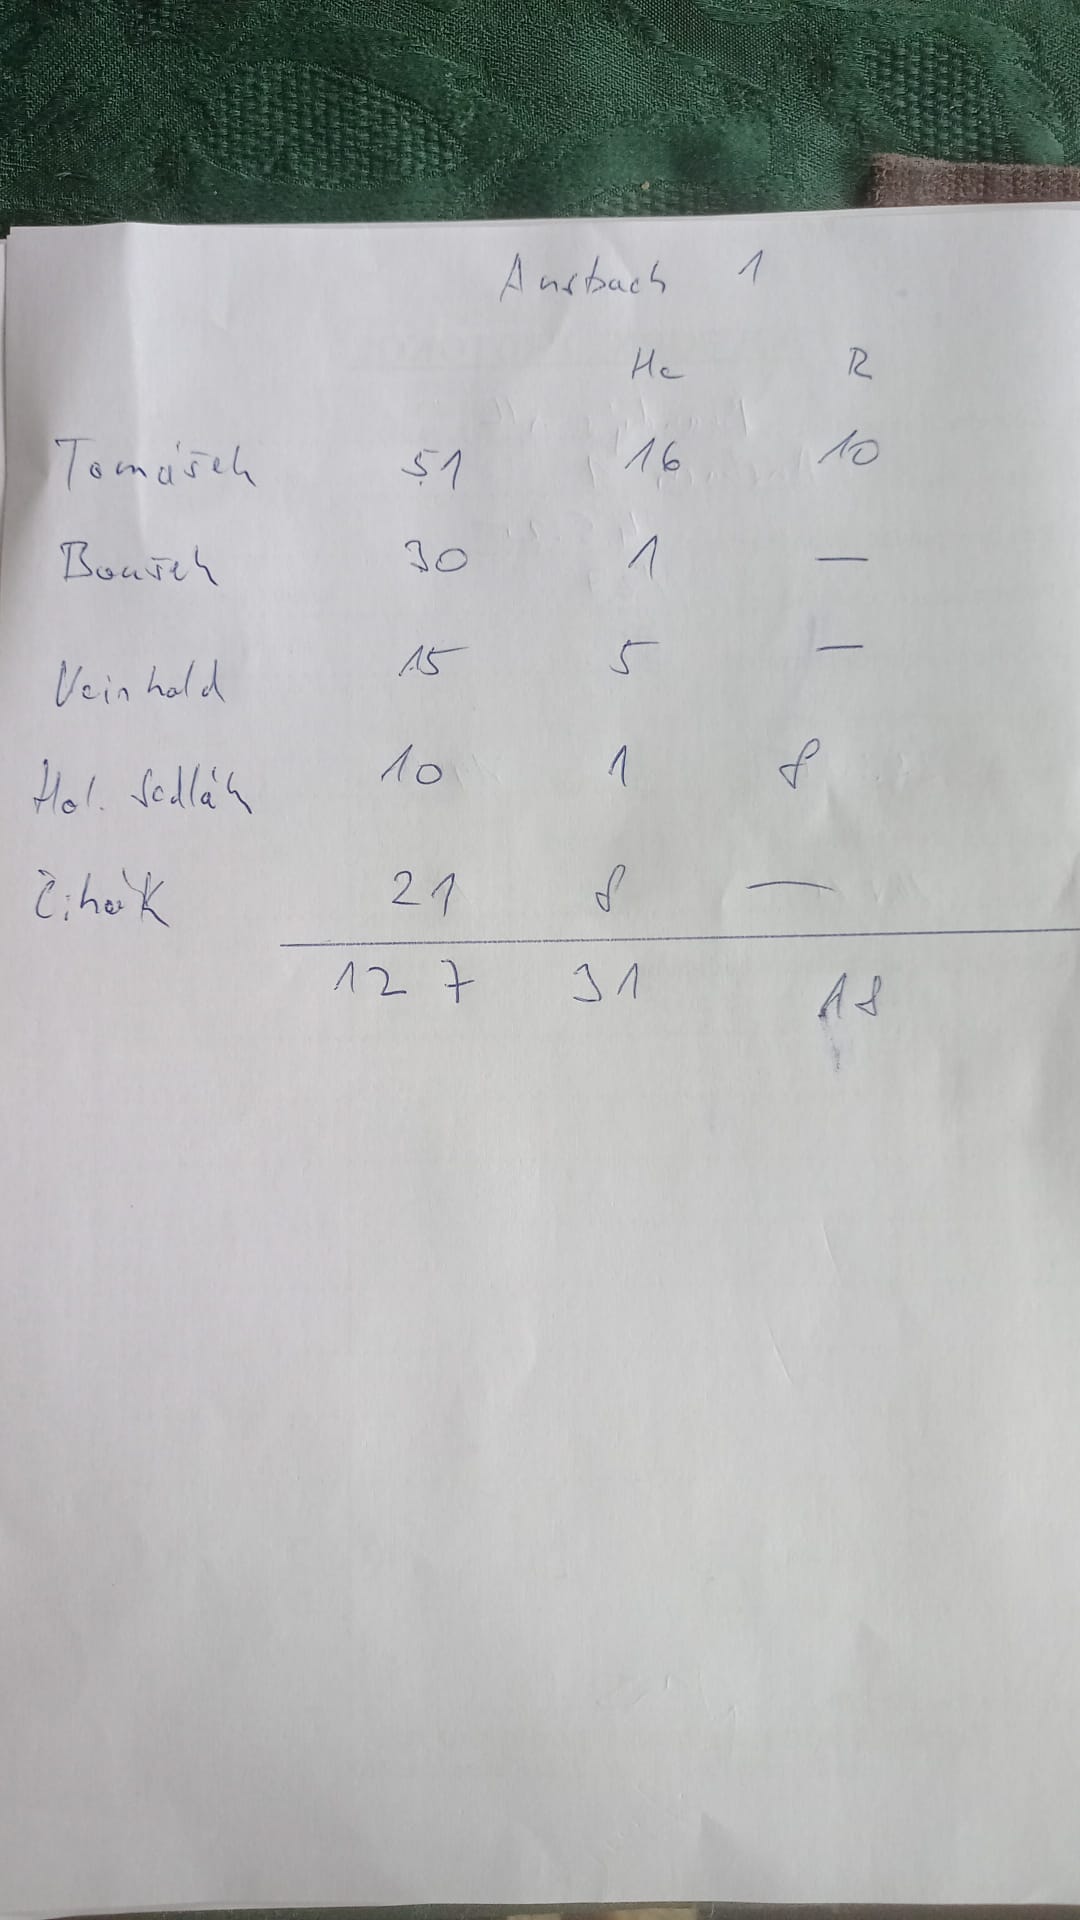 Ansbach 1
Ha R
Tomášek 51 16 10
Boušek 30 1 —
Veinhold 15 5 —
Hol. Sedlák 10 1 8
Čihák 21 8 —
127 31 18